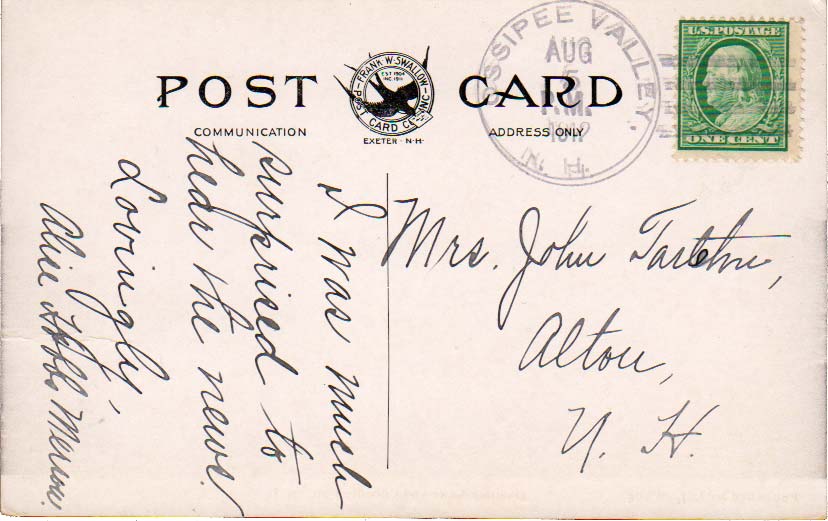 POST CARD
FRANK W. SWALLOW
EST 1904
INC. 1911
POST CARD CO. INC.
EXETER · N·H·
COMMUNICATION
ADDRESS ONLY
OSSIPEE VALLEY,
AUG
5
P M.
1912
N. H.
U.S. POSTAGE
ONE CENT
I was much
surprised to
hear the news.
Lovingly,
Alice Hobbs Merrow.
Mrs. John Tarleton,
Alton,
N. H.